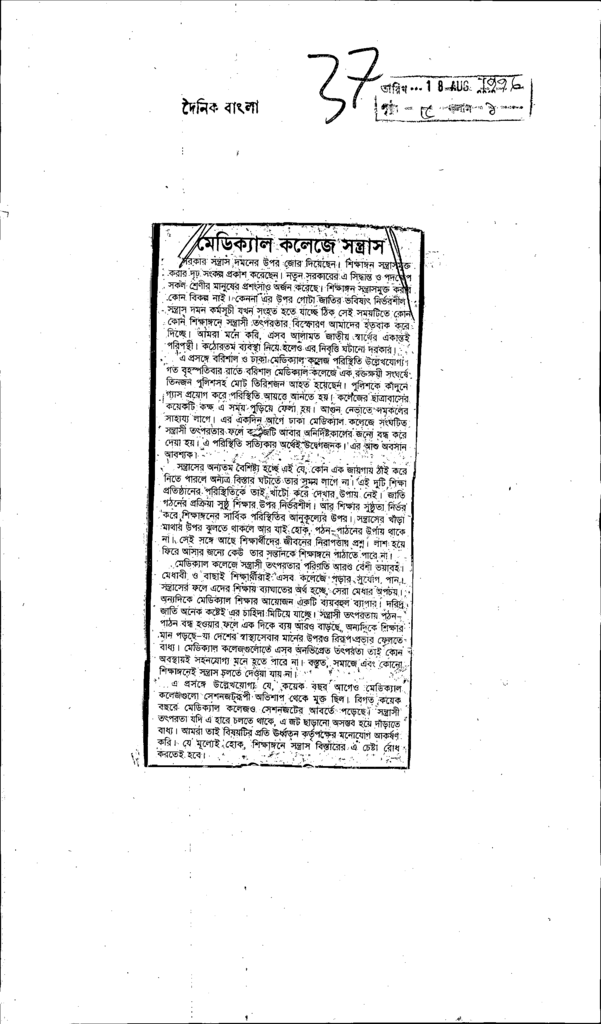 37
দৈনিক বাংলা
তারিখ ... 18 AUG 1996
পৃষ্ঠা - ৫ কলাম - ১
মেডিক্যাল কলেজে সন্ত্রাস
সরকার সন্ত্রাস দমনের উপর জোর দিয়েছেন। শিক্ষাঙ্গন সন্ত্রাসমুক্ত
করার দৃঢ় সংকল্প প্রকাশ করেছেন। নতুন সরকারের এ সিদ্ধান্ত ও পদক্ষেপ
সকল শ্রেণীর মানুষের প্রশংসাও অর্জন করেছে। শিক্ষাঙ্গন সন্ত্রাসমুক্ত করার
কোন বিকল্প নাই। কেননা এর উপর গোটা জাতির ভবিষ্যৎ নির্ভরশীল।
সন্ত্রাস দমন কর্মসূচী যখন সংহত হতে যাচ্ছে ঠিক সেই সময়টিতে কোন
কোন শিক্ষাঙ্গনে সন্ত্রাসী তৎপরতার বিস্ফোরণ আমাদের হতবাক করে
দিচ্ছে। আমরা মনে করি, এসব আলামত জাতীয় স্বার্থের একান্তই
পরিপন্থী। কঠোরতম ব্যবস্থা নিয়ে হলেও এর নিবৃত্তি ঘটানো দরকার।
এ প্রসঙ্গে বরিশাল ও ঢাকা মেডিক্যাল কলেজ পরিস্থিতি উল্লেখযোগ্য।
গত বৃহস্পতিবার রাতে বরিশাল মেডিক্যাল কলেজে এক রক্তক্ষয়ী সংঘর্ষে
তিনজন পুলিশসহ মোট তিরিশজন আহত হয়েছেন। পুলিশকে কাঁদুনে
গ্যাস প্রয়োগ করে পরিস্থিতি আয়ত্তে আনতে হয়। কলেজের ছাত্রাবাসের
কয়েকটি কক্ষ এ সময় পুড়িয়ে ফেলা হয়। আগুন নেভাতে দমকলের
সাহায্য লাগে। এর একদিন আগে ঢাকা মেডিক্যাল কলেজে সংঘটিত
সন্ত্রাসী তৎপরতার ফলে কলেজটি আবার অনির্দিষ্টকালের জন্যে বন্ধ করে
দেয়া হয়। এ পরিস্থিতি সত্যিকার অর্থেই উদ্বেগজনক। এর আশু অবসান
আবশ্যক।
সন্ত্রাসের অন্যতম বৈশিষ্ট্য হচ্ছে এই যে, কোন এক জায়গায় ঠাঁই করে
নিতে পারলে অন্যত্র বিস্তার ঘটাতে তার সময় লাগে না। এই দুটি শিক্ষা
প্রতিষ্ঠানের পরিস্থিতিকে তাই খাটো করে দেখার উপায় নেই। জাতি
গঠনের প্রক্রিয়া সুষ্ঠু শিক্ষার উপর নির্ভরশীল। আর শিক্ষার সুষ্ঠুতা নির্ভর
করে শিক্ষাঙ্গনের সার্বিক পরিস্থিতির আনুকূল্যের উপর। সন্ত্রাসের খাঁড়া
মাথার উপর ঝুলতে থাকলে আর যাই হোক, পঠন-পাঠনের উপায় থাকে
না। সেই সঙ্গে আছে শিক্ষার্থীদের জীবনের নিরাপত্তার প্রশ্ন। লাশ হয়ে
ফিরে আসার জন্যে কেউ তার সন্তানকে শিক্ষাঙ্গনে পাঠাতে পারে না।
মেডিক্যাল কলেজে সন্ত্রাসী তৎপরতার পরিণতি আরও বেশী ভয়াবহ।
মেধাবী ও বাছাই শিক্ষার্থীরাই এসব কলেজে পড়ার সুযোগ পান।
সন্ত্রাসের ফলে এদের শিক্ষায় ব্যাঘাতের অর্থ হচ্ছে, সেরা মেধার অপচয়।
অন্যদিকে মেডিক্যাল শিক্ষার আয়োজন একটি ব্যয়বহুল ব্যাপার। দরিদ্র
জাতি অনেক কষ্টেই এর চাহিদা মিটিয়ে যাচ্ছে। সন্ত্রাসী তৎপরতায় পঠন-
পাঠন বন্ধ হওয়ার ফলে এক দিকে ব্যয় আরও বাড়ছে, অন্যদিকে শিক্ষার
মান পড়ছে-যা দেশের স্বাস্থ্যসেবার মানের উপরও বিরূপ প্রভাব ফেলতে
বাধ্য। মেডিক্যাল কলেজগুলোতে এসব অনভিপ্রেত তৎপরতা তাই কোন
অবস্থায়ই সহনযোগ্য মনে হতে পারে না। বস্তুত, সমাজে এবং কোনো
শিক্ষাঙ্গনেই সন্ত্রাস চলতে দেওয়া যায় না।
এ প্রসঙ্গে উল্লেখযোগ্য যে, কয়েক বছর আগেও মেডিক্যাল
কলেজগুলো সেশনজটরূপী অভিশাপ থেকে মুক্ত ছিল। বিগত কয়েক
বছরে মেডিক্যাল কলেজও সেশনজটের আবর্তে পড়েছে। সন্ত্রাসী
তৎপরতা যদি এ হারে চলতে থাকে, এ জট ছাড়ানো অসম্ভব হয়ে দাঁড়াতে
বাধ্য। আমরা তাই বিষয়টির প্রতি ঊর্ধ্বতন কর্তৃপক্ষের মনোযোগ আকর্ষণ
করি। যে মূল্যেই হোক, শিক্ষাঙ্গনে সন্ত্রাস বিস্তারের এ চেষ্টা রোধ
করতেই হবে।